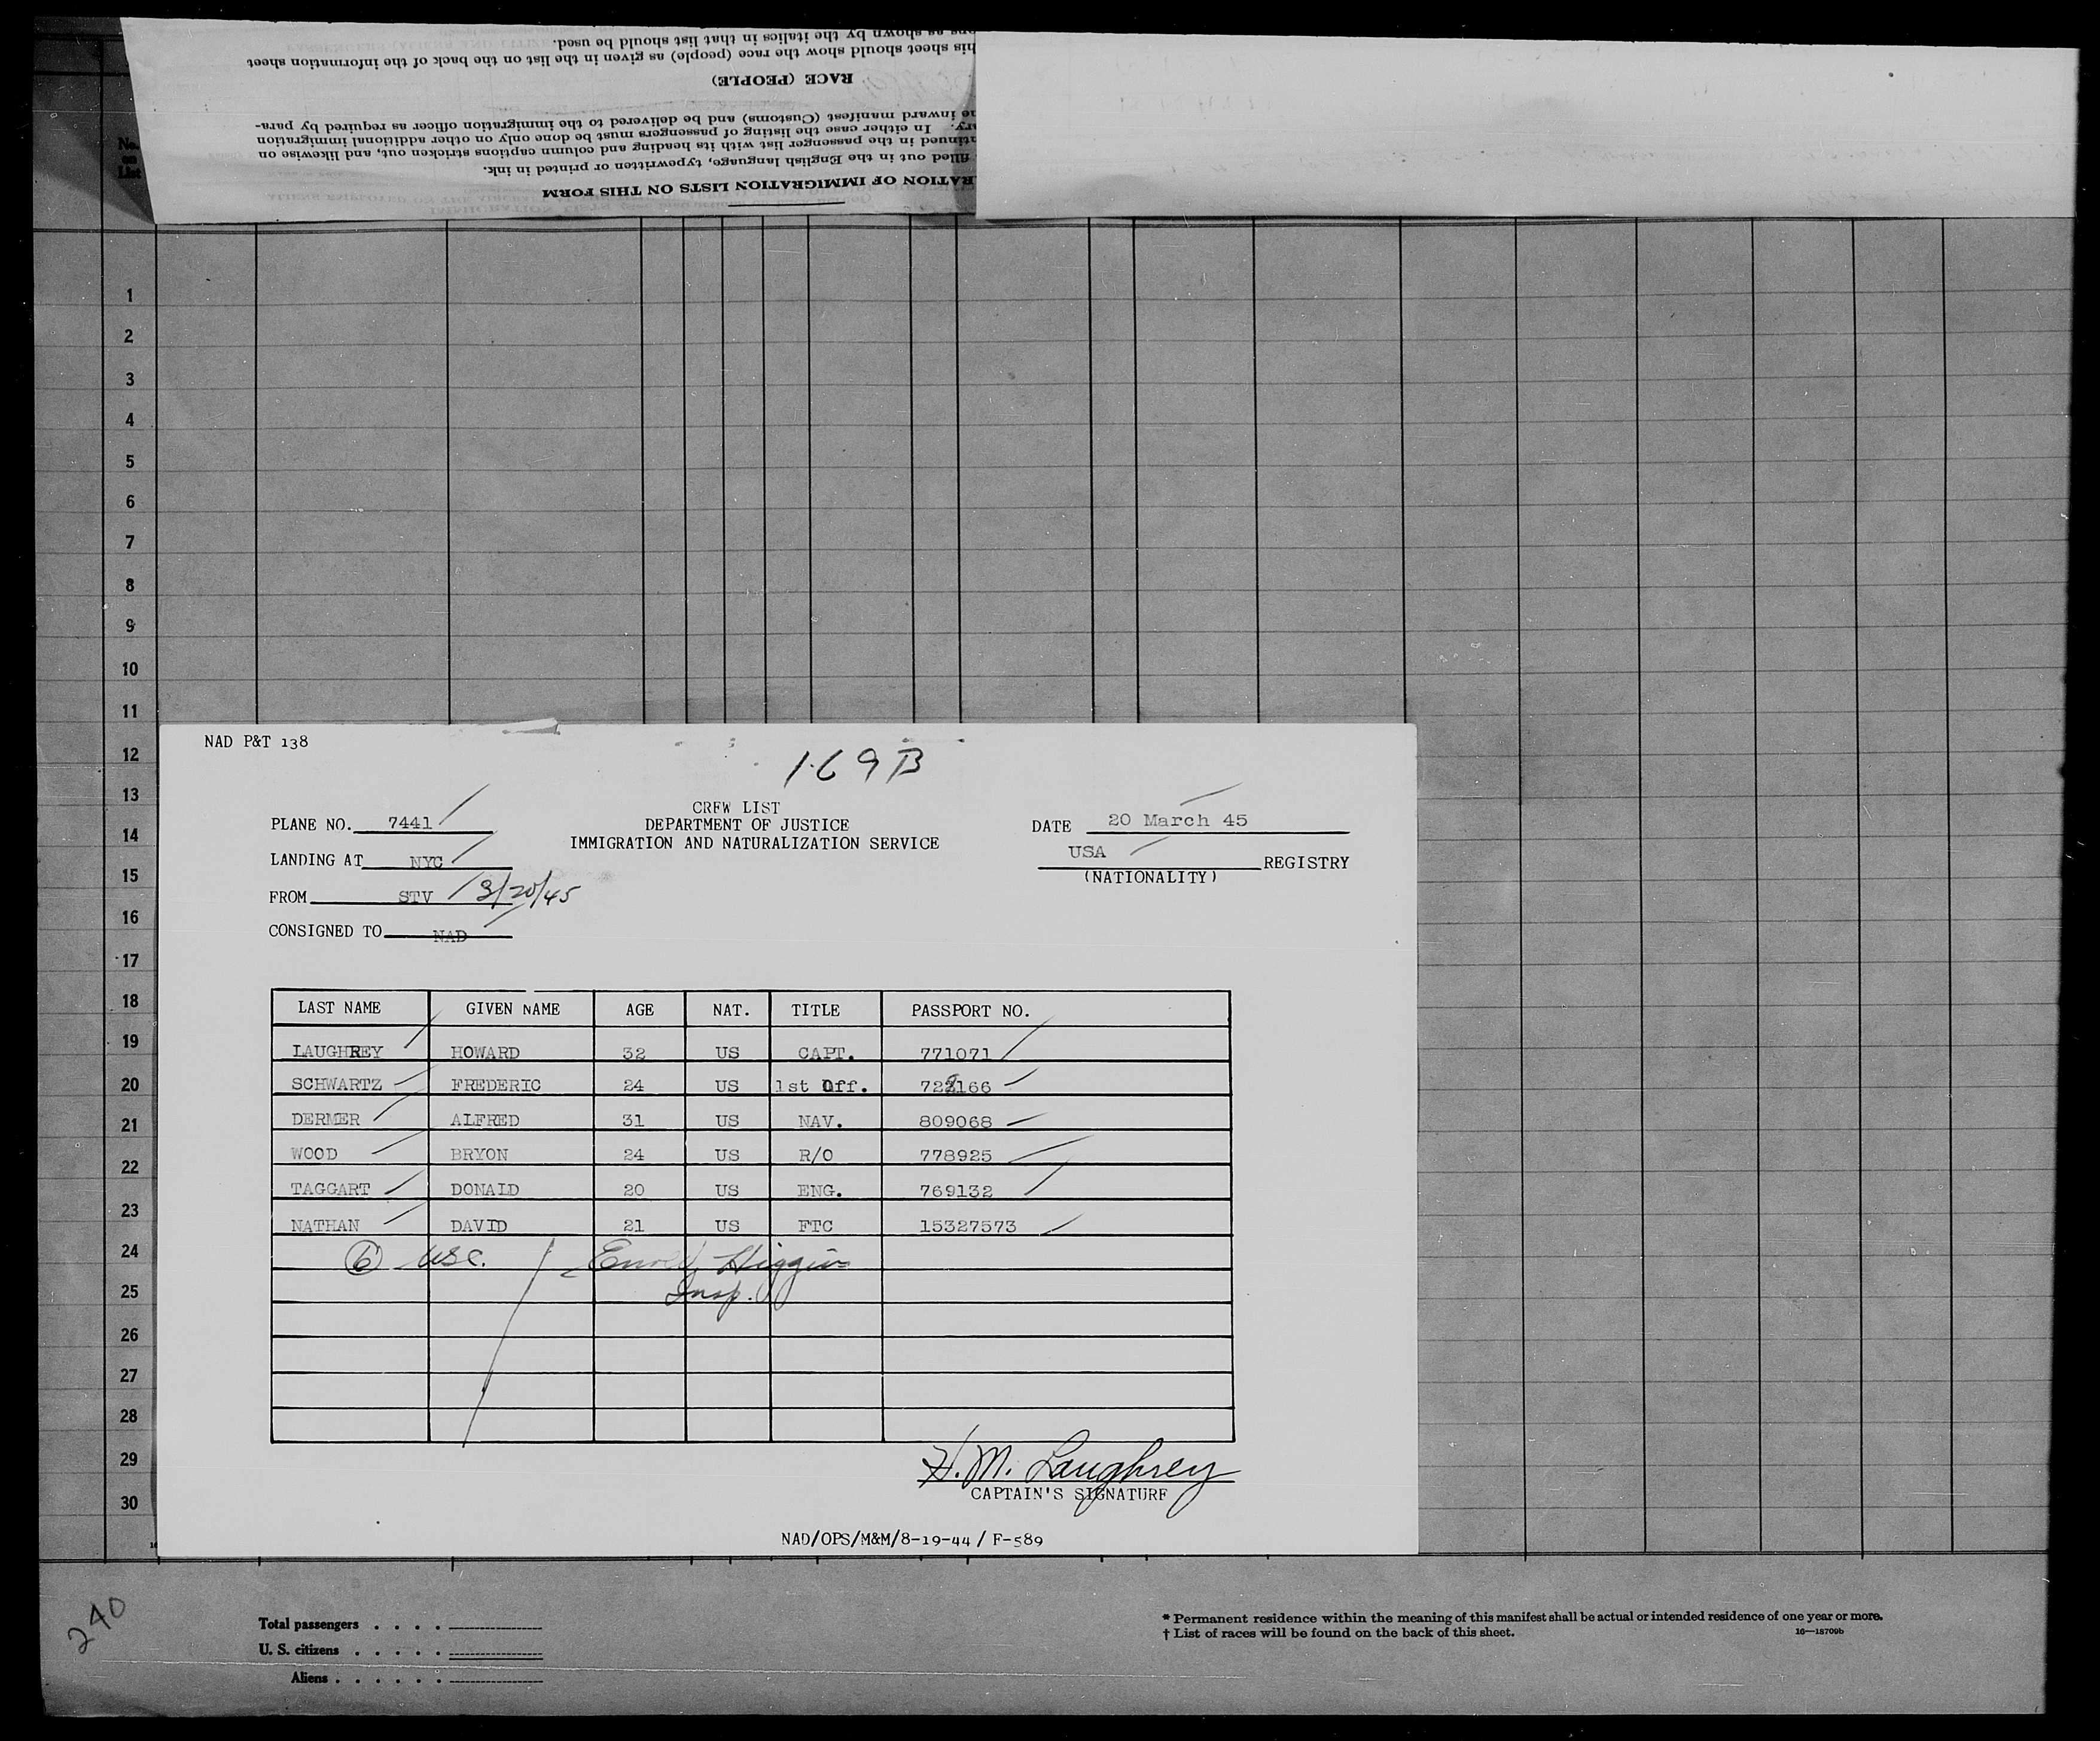 ns as shown by the italics in that list should be used.
his sheet should show the race (people) as given in the list on the back of the information sheet
RACE (PEOPLE)
ne inward manifest (Customs) and be delivered to the immigration officer as required by para-
ry. In either case the listing of passengers must be done only on other additional immigration
tinued in the passenger list with its heading and column captions stricken out, and likewise on
filled out in the English language, typewritten or printed in ink.
RATION OF IMMIGRATION LISTS ON THIS FORM
No.
on
List
1
2
3
4
5
6
7
8
9
10
11
12
13
14
15
16
17
18
19
20
21
22
23
24
25
26
27
28
29
30
NAD P&T 138
169B
CREW LIST
DEPARTMENT OF JUSTICE
IMMIGRATION AND NATURALIZATION SERVICE
PLANE NO. 7441
LANDING AT NYC
FROM STV 3/20/45
CONSIGNED TO NAD
DATE 20 March 45
USA REGISTRY
(NATIONALITY)
LAST NAME GIVEN NAME AGE NAT. TITLE PASSPORT NO.
LAUGHREY HOWARD 32 US CAPT. 771071
SCHWARTZ FREDERIC 24 US 1st Off. 722166
DERMER ALFRED 31 US NAV. 809068
WOOD BRYON 24 US R/O 778925
TAGGART DONALD 20 US ENG. 769132
NATHAN DAVID 21 US FTC 15327573
6 USC. Higgins
Insp.
H. M. Laughrey
CAPTAIN'S SIGNATURE
NAD/OPS/M&M/8-19-44 / F-589
240
Total passengers . . . .
U. S. citizens . . . . .
Aliens . . . . . .
* Permanent residence within the meaning of this manifest shall be actual or intended residence of one year or more.
† List of races will be found on the back of this sheet.
16—18709b